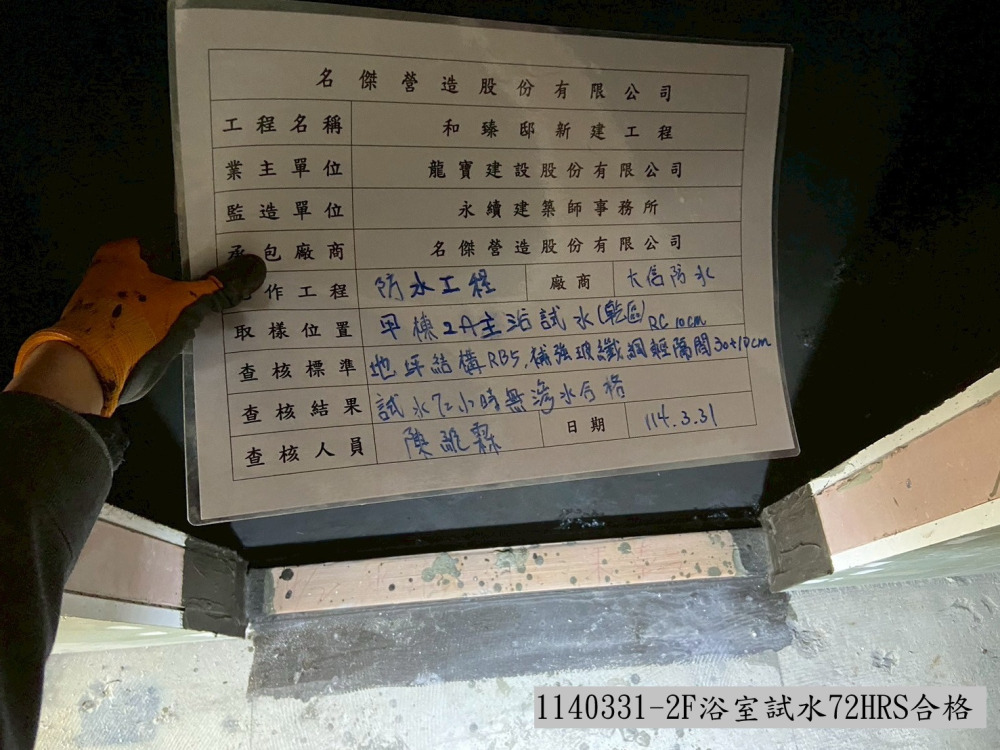 名傑營造股份有限公司
工程名稱 和臻邸新建工程
業主單位 龍寶建設股份有限公司
監造單位 永續建築師事務所
承包廠商 名傑營造股份有限公司
作工程 防水工程 廠商 大信防水
取樣位置 甲棟2A主浴試水(乾區)
RC 10cm
查核標準 地坪結構RBS,補強玻纖網輕隔間30±10cm
查核結果 試水72小時無滲水合格
查核人員 陳 霖 日期 114.3.31
1140331-2F浴室試水72HRS合格